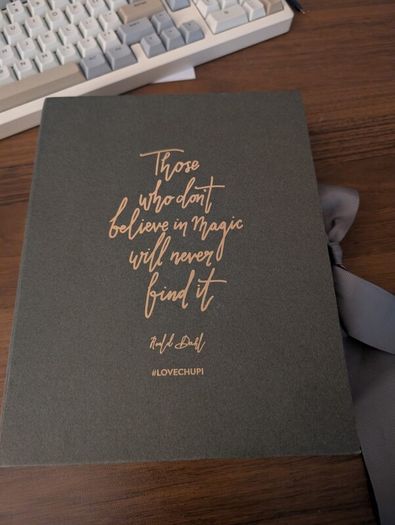 Those
who don't
believe in magic
will never
find it
Roald Dahl
#LOVECHUPI